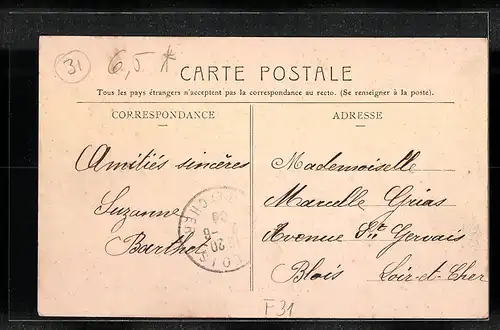 31
6,5 *
CARTE POSTALE
Tous les pays étrangers n'acceptent pas la correspondance au recto. (Se renseigner à la poste).
CORRESPONDANCE
ADRESSE
Amitiés sincères
Suzanne
Barthot
Mademoiselle
Marcelle Grias
Avenue St Gervais
Blois Loir-et-Cher
F31